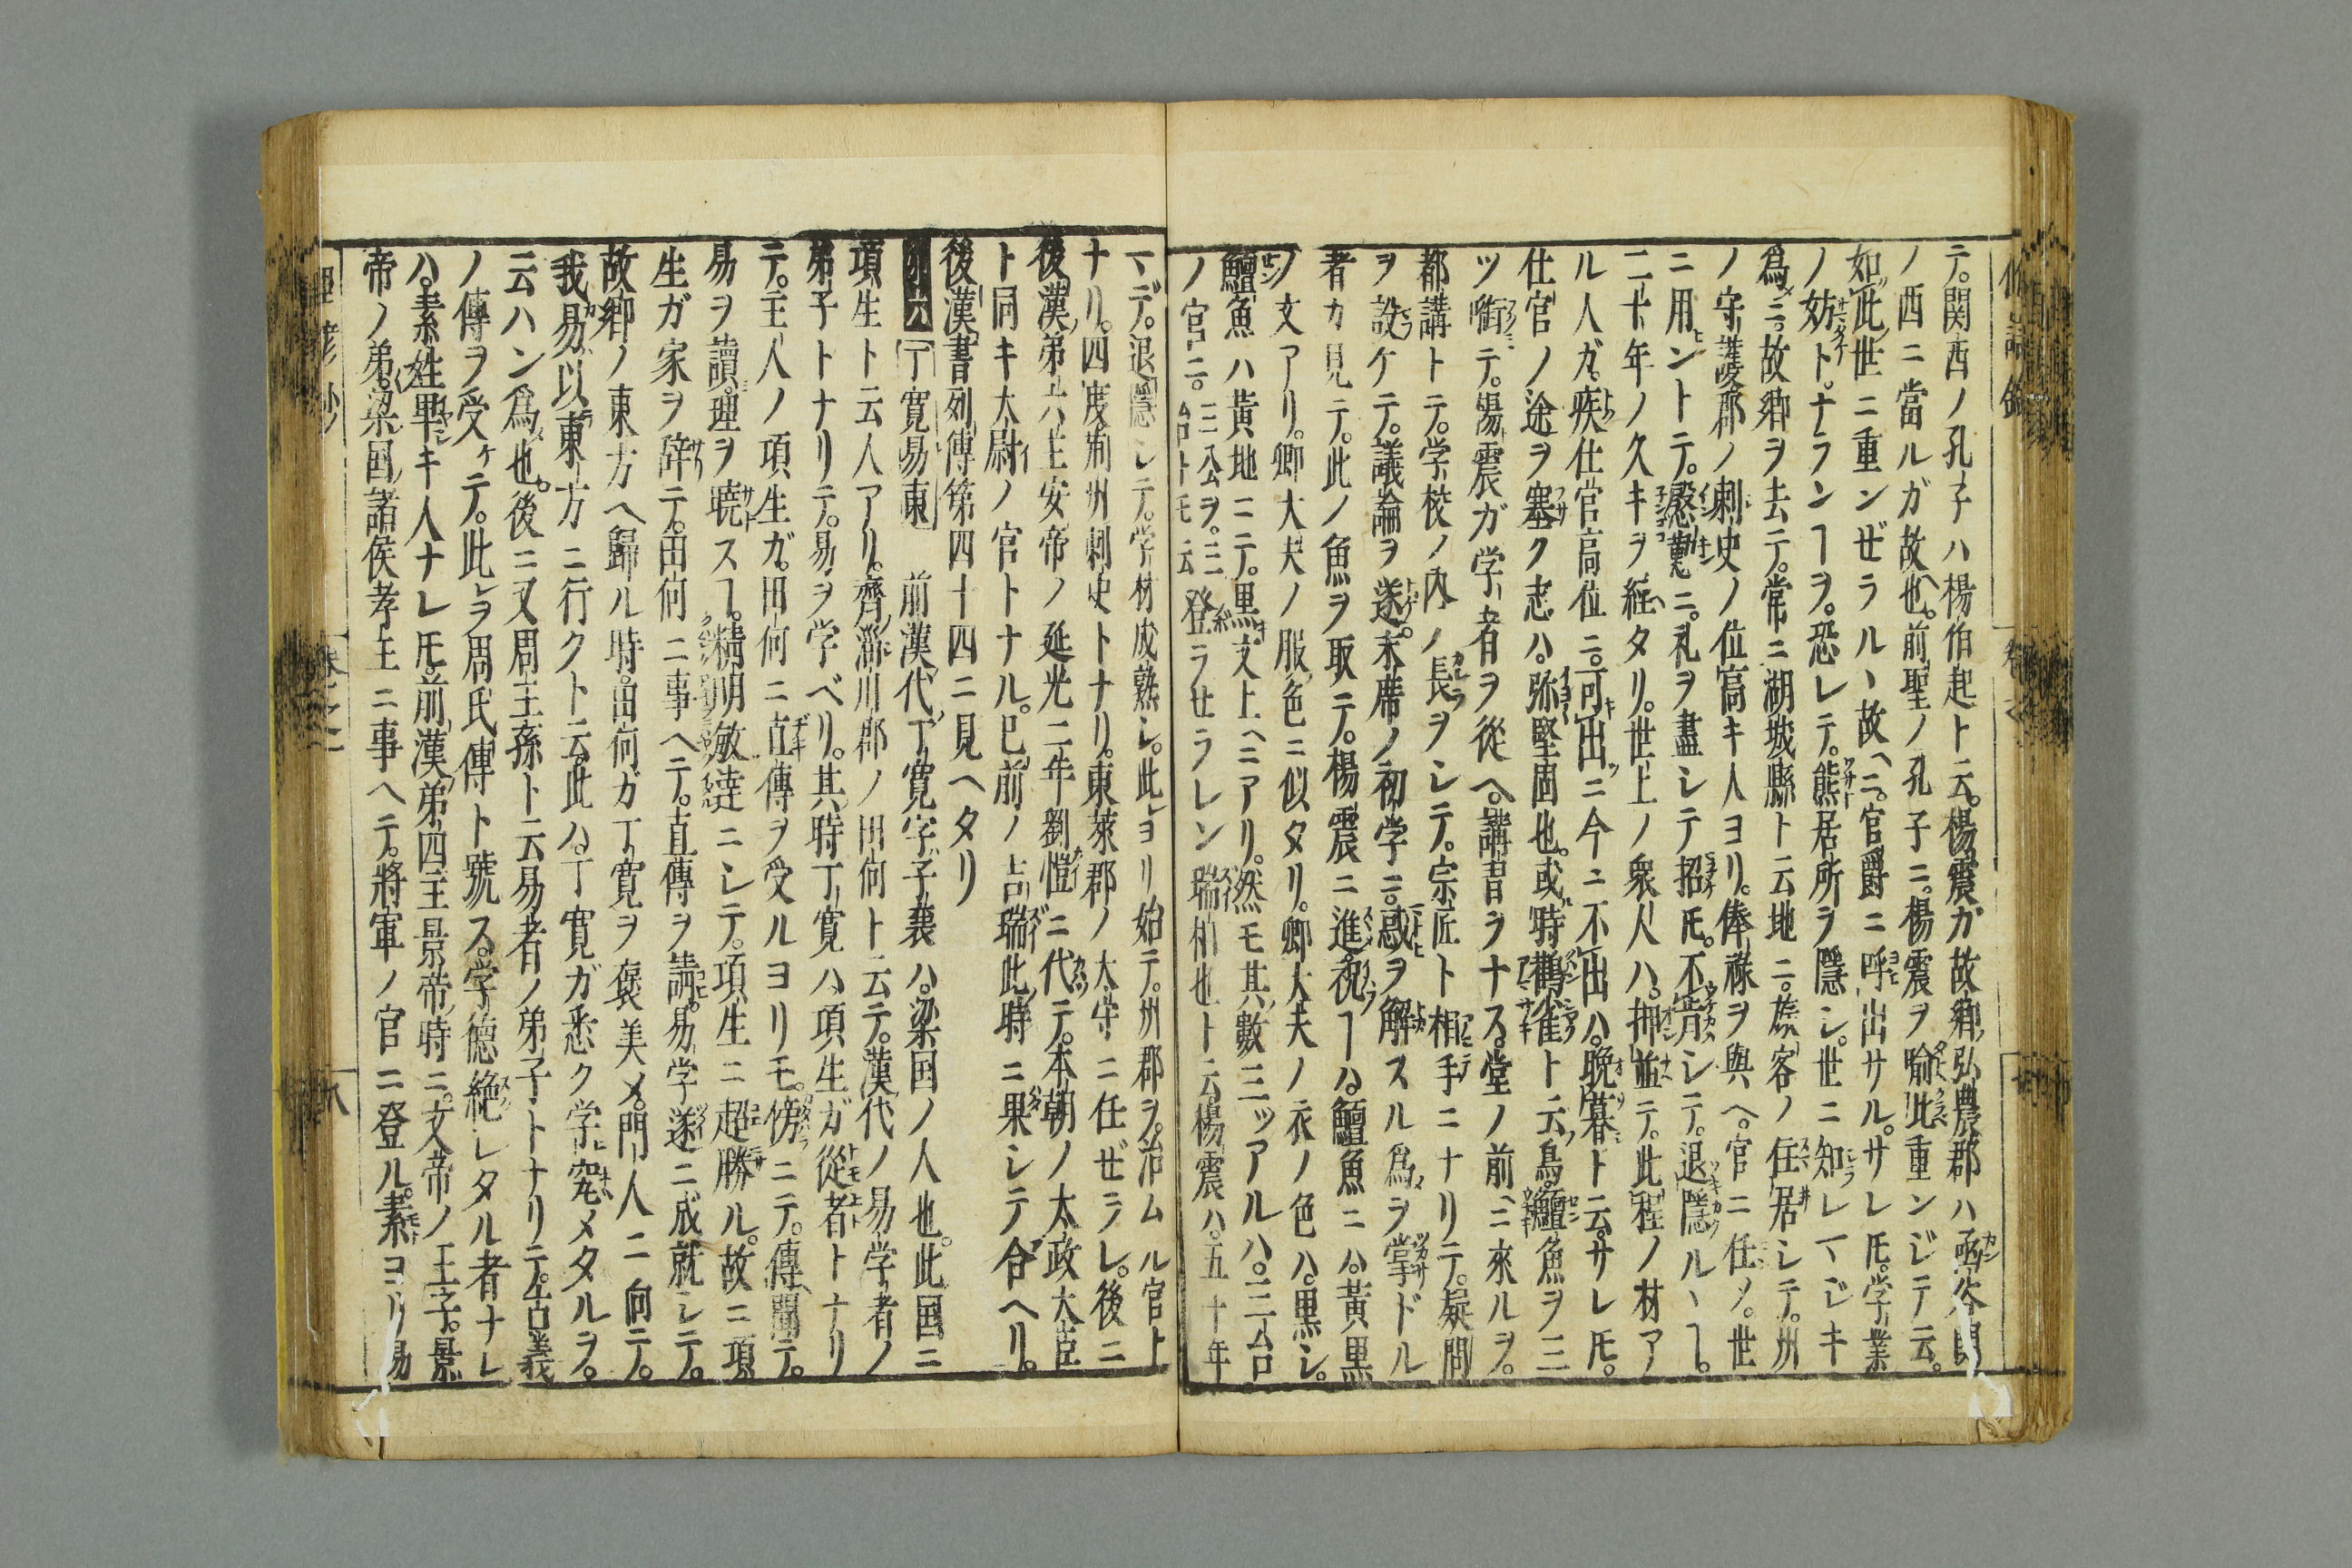 テ。関西ノ孔子ハ楊伯起ト云。楊震ガ故郷弘農郡ハ函谷関
ノ西ニ當ルガ故也。前聖ノ孔子ニ。楊震ヲ喩。此重ンジテ云。
如此世ニ重ンゼラルヽ故ヘニ。官爵ニ呼出サル。サレ𪜈。学業
ノ妨ト。ナランヿヲ。恐レテ。態居所ヲ隠シ。世ニ知レマジキ
爲ニ。故郷ヲ去テ。常ニ湖城縣ト云地ニ。旅客ノ住居シテ。州
ノ守護郡ノ刺史ノ位高キ人ヨリ。俸禄ヲ與ヘ。官ニ任メ。世
ニ用ントテ。慇懃ニ。礼ヲ盡シテ招𪜈。不肯シテ。退隠ルヽヿ。
二十年ノ久キヲ経タリ。世上ノ衆人ハ。押並テ。此程ノ材ア
ル人ガ。疾仕官高位ニ。可出ニ今ニ不出ハ。晩暮ト云。サレ𪜈。
仕官ノ途ヲ塞ク志ハ。弥堅固也。或時鸛雀ト云鳥。鱣魚ヲ三
ツ銜テ。楊震ガ学者ヲ從ヘ。講書ヲナス。堂ノ前ヘニ來ルヲ。
都講トテ。学校ノ内ノ長ヲシテ。宗匠ト相手ニナリテ。疑問
ヲ設ケテ。議論ヲ遂。末席ノ初学ニ。惑ヲ解スル爲ヲ掌ドル
者カ見テ。此ノ魚ヲ取テ。楊震ニ進。祝ヿハ。鱣魚ニハ。黄黒
ノ文アリ。卿大夫ノ服色ニ似タリ。卿大夫ノ衣ノ色ハ。黒シ。
鱣魚ハ黄地ニテ。黒文上ヘニアリ。然モ其數三ツアルハ。三台
ノ官ニ。三公ヲ。三台トモ云登ラせラレン瑞相也ト云楊震ハ。五十年
マデ。退隠シテ。学材成熟シ。此ヨリ始テ。州郡ヲ。治ムル官上
ナリ。四度荊州刺史トナリ。東萊郡ノ大守ニ任ぜラレ。後ニ
後漢弟六主安帝ノ延光二年劉愷ニ代テ。本朝ノ太政大臣
ト同キ太尉ノ官トナル。已前ノ吉瑞此時ニ果シテ合ヘリ。
後漢書列傳第四十四ニ見ヘタリ
丁寛易東　前漢代丁寛字子襄ハ。梁国ノ人也。此国ニ
項生ト云人アリ。齊淄川郡ノ田何ト云テ。漢代ノ易学者ノ
弟子トナリテ。易ヲ学ベリ。其時丁寛ハ項生ガ從者トナリ
テ。主人ノ項生ガ。田何ニ直傳ヲ受ルヨリモ。傍ニテ。傳聞テ。
易ヲ讀。理ヲ暁スヿ。精明敏達ニシテ。項生ニ超勝ル。故ニ項
生ガ家ヲ辞テ。田何ニ事ヘテ。直傳ヲ請。易学遂ニ成就シテ。
故郷ノ東方ヘ歸ル時。田何ガ丁寛ヲ褒美メ。門人ニ向テ。
我易以東方ニ行クト云。此ハ。丁寛ガ悉ク学究メタルヲ。
云ハン爲也。後ニ又周王孫ト云易者ノ弟子トナリテ。古義
ノ傳ヲ受ケテ。此レヲ周氏傳ト號ス。学德絶レタル者ナレ
ハ。素姓卑キ人ナレ𪜈。前漢弟四主景帝時ニ。文帝ノ王子。景
帝ノ弟。梁国諸侯孝王ニ事ヘテ。將軍ノ官ニ登ル。素ヨリ易